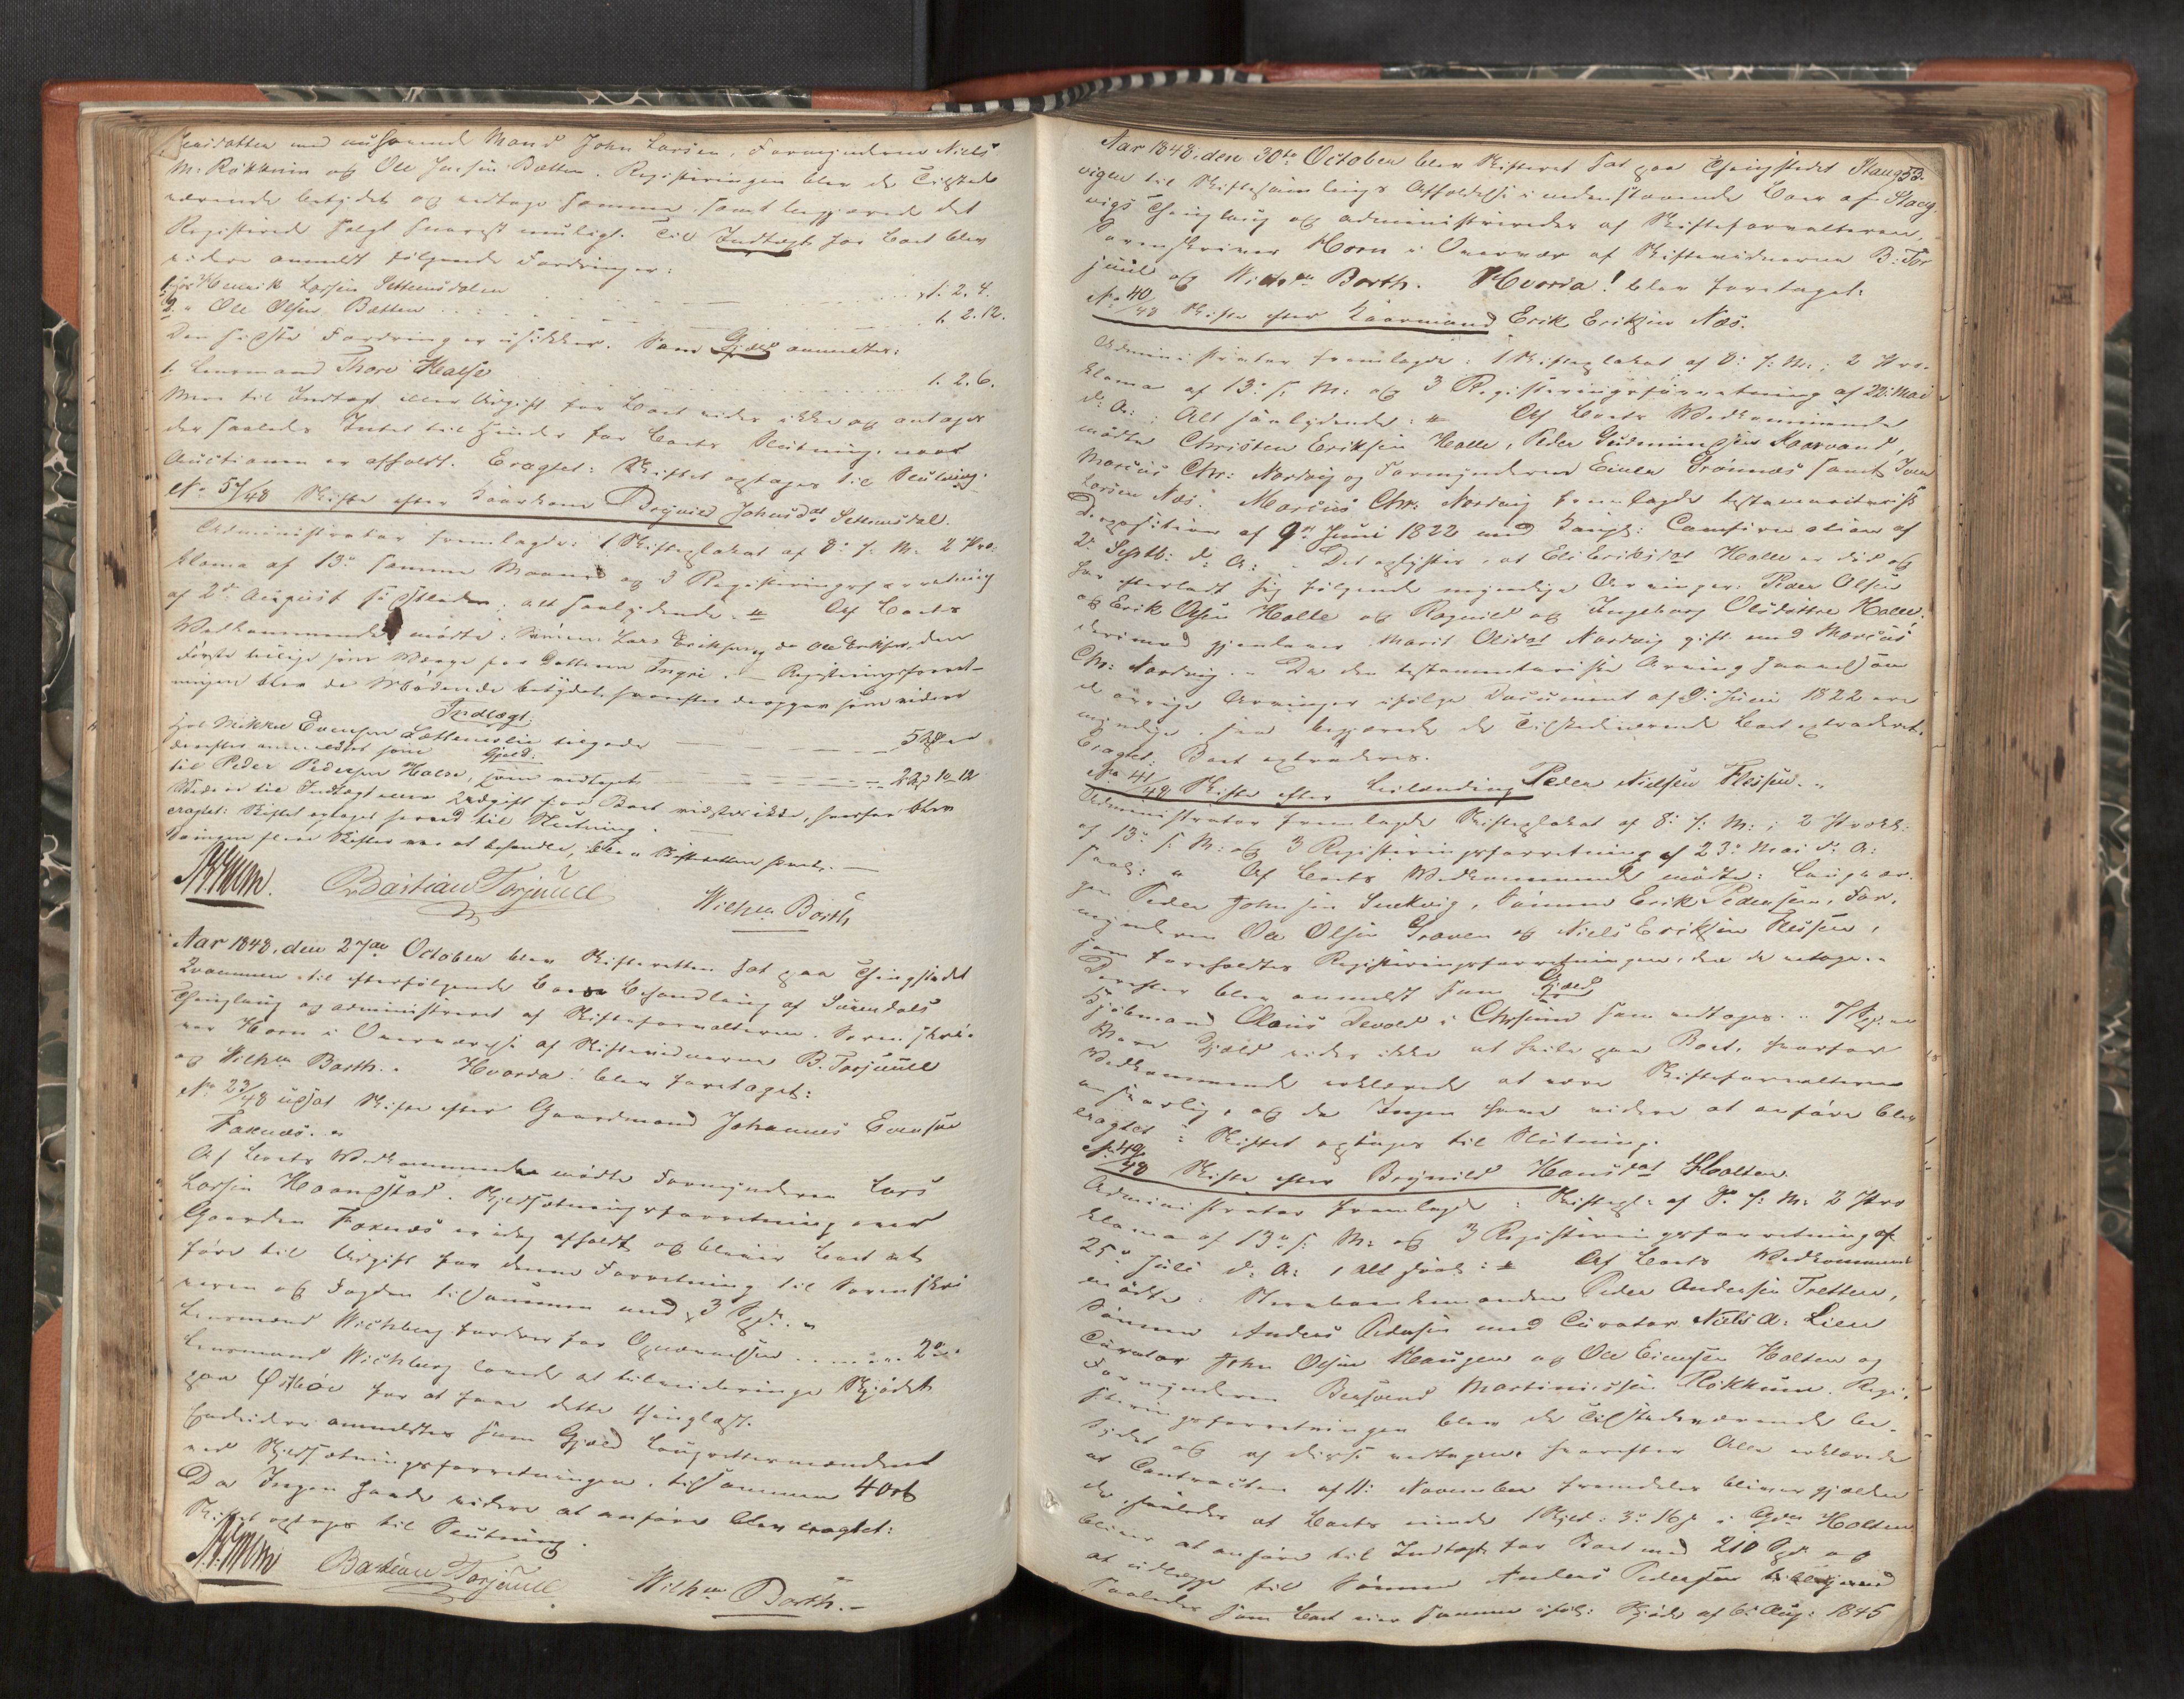 Jensdatter med nuhavende Mand John Larsen, Formynderen Niels
M. Rökkum og Ole Jensen Bætten. Registeringen blev de Tilstede
værende betydet og vedtoge samme samt begjærede det
Registerede solgt snarest muligt. Til Indtægt for Boet blev
videre anmeldt følgende Fordringer:
1. hos Henrik Larsen Settemsdalen 1. 2. 4.
2. " Ole Olsen Bætten 1. 2. 12.
Den sidste Fordring er usikker. Som Gjæld anmeldtes:
1. Lensmand Thore Halse 1. 2. 6.
Mere til Indtægt eller Udgift for Boet vides ikke og antages
der saaledes Intet til Hinder for Boets Slutning, naar
Auctionen er afholdt. Eragtet: Skiftet optages til Slutning.
No. 57/48 Skifte efter Kaarkone Brynild Johnsdat Settemsdal.
Administrator fremlagde: 1 Skifteplakat af 8. f: M: 2 Pro-
klama af 13de samme Maaned og 3 Registeringsforretning
af 2den August sidstleden; alt saalydende. Af Boets
Vedkommende mödte: Sönnen Lars Eriksen og do Ole Eriksen, den
Förste tillige som Værge for Datteren Ingri. Registeringsforret-
ningen blev de Mödende betydet, hvorefter deropgav som videre
Indtægt:
hos Mikkel Evensen Settemslie tilgode 5 Spd
derefter anmeldtes som Gjæld:
til Peder Pedersen Halse, som vedtaget 22 10 12
Videre til Indtægt eller Udgift for Boet vidstes ikke, hvorfor blev
eragtet: Skiftet optaget herved til Slutning.
Da ingen flere Skifter var at behandle, blev Skifteretten hævet.
Horn. Bastian Torjuul Wilhm Barth
Aar 1848, den 27de October blev Skifteretten sat paa Thingstedet
Kvammen til efterfölgende Boers Behandling af Surendals
Thinglaug og administreret af Skifteforvalteren, Sorenskri-
ver Horn i Overværelse af Skiftevidnerne B. Torjuul
og Wilhm Barth. Hvorda! blev foretaget:
No. 23/48 udsat Skifte efter Gaardmand Johannes Evensen
Foxnæs.
Af Boets Vedkommende mödte Formynderen Lars
Larsen Haangstad. Skjelsætningsforretning over
Gaarden Foxnæs er idag afholdt og bliver Boet at
före til Udgift for denne Forretning til Sorenskri
veren og Fogden tilsammen med 3 Spd.
Lensmand Wichberg fordrer for Opnævnelsen 2
Lensmand Wichberg lovede at tilveiebringe Skjödet
paa for at faae dette thinglæst.
Endvidere anmeldtes som Gjæld Laugrettesmændene
ved Skjelsætningsforretningen, tilsammen 4 Ort
Da Ingen havde videre at anföre blev eragtet:
Skiftet optages til Slutning.
Horn Bastian Torjuul Wilhm Barth.
53.
Aar 1848, den 30te October blev Skifteret sat paa Thingstedet Stang
vigen til Skiftesamlings Afholdelse i nedenstaaende Boer af Stang
vigs Thinglaug og administreredes af Skifteforvalteren,
Sorenskriver Horn i Overvær af Skiftevidnerne B: Tor
juul og Wilhm Barth. Hvorda! blev foretaget:
No. 40/48 Skifte efter Kaarmand Erik Eriksen Næs.
Administrator fremlagde: 1 Skifteplakat af 8: f: M:, 2 Pro-
klama af 13: f: M: og 3 Registeringsforretning af 22: Mai
d: A: Alt saalydende: Af Boets Vedkommende
mödte Christen Eriksen Halle, Peder Gudmundsen Kaarvand,
Marcus Chr: Nordvig og Formynderen Einer Grönnæs samt Iver
Larsen Næs. Marcus Chr. Nordvig fremlagde testamentarisk
Disposition af 9de Juni 1822 med kongl: Confirmation af
2. Septb: d: A: Det oplystes, at Eli Eriksdat Halle er död og
har efterladt sig fölgende myndige Arvinger: Peder Olsen
og Erik Olsen Halle og Ragnild og Ingeborg Olsdötre Halle,
derimod gjenlever Marit Olsdat Nordvig gift med Marcus
Chr: Nordvig. Da den testamentariske Arving saavelsom
de övrige Arvinger ifölge Document af 9: Juni 1822 ere
myndige, saa begjærede de Tilstedeværende Boet extraderet.
Eragtet: Boet extraderes.
No. 41/48 Skifte efter Leilænding Peder Nielsen Fleisen.
Administrator fremlagde Skifteplakat af 8: f: M:; 2 Prokl:
af 13de f: M: og 3 Registeringsforretning af 23de Mai d: A:
saal: Af Boets Vedkommende mödte: Laugvær-
gen Peder Johnsen Snekvig, Sönnen Erik Pedersen, For-
mynderen Ole Olsen Graven og Niels Eriksen Fleisen,
som foreholdtes Registeringsforretningen, den de vedtoge.
Derefter blev anmeldt som Gjæld
Kjöbmand Claus Devold i Chrsund som vedtages 7 Spd
Mere Gjæld vides ikke at hvile paa Boet, hvorfor
Vedkommende erklærede at være Skifteforvalteren
ansvarlig, og da Ingen havde videre at anföre blev
eragtet: Skiftet optages til Slutning.
No. 49/48 Skifte efter Brynild Hansdat Holten
Administrator fremlagde: Skiftepl: af 8. f: M: 2 Pro
klama af 13de f: M: og 3 Registeringsforretning af
25de Juli d: A:, alt saal: Af Boets Vedkommende
mödte: Stervboenkemanden Peder Andersen Tretten,
Sönnen Anders Pedersen med Curator Niels A: Lien
Curator John Olsen Haugen og Ole Einersen Holten og
Formynderen Bersvend Martinussen Rökkum. Regi-
steringsforretningen blev de Tilstedeværende be-
tydet og af disse vedtagen, hvorefter Alle erklærede
at Contracten af 11: November fremdeles bliver gjældende
saaledes at Boets eiende 1 Spd: 3 16 i Gden Holten
bliver at anföre til Indtægt for Boet med 210 Spd og
at udlægge til Sönnen Anders Pedersen
saaledes som Boet eier samme iföl: Skjöde af 6: Aug: 1845